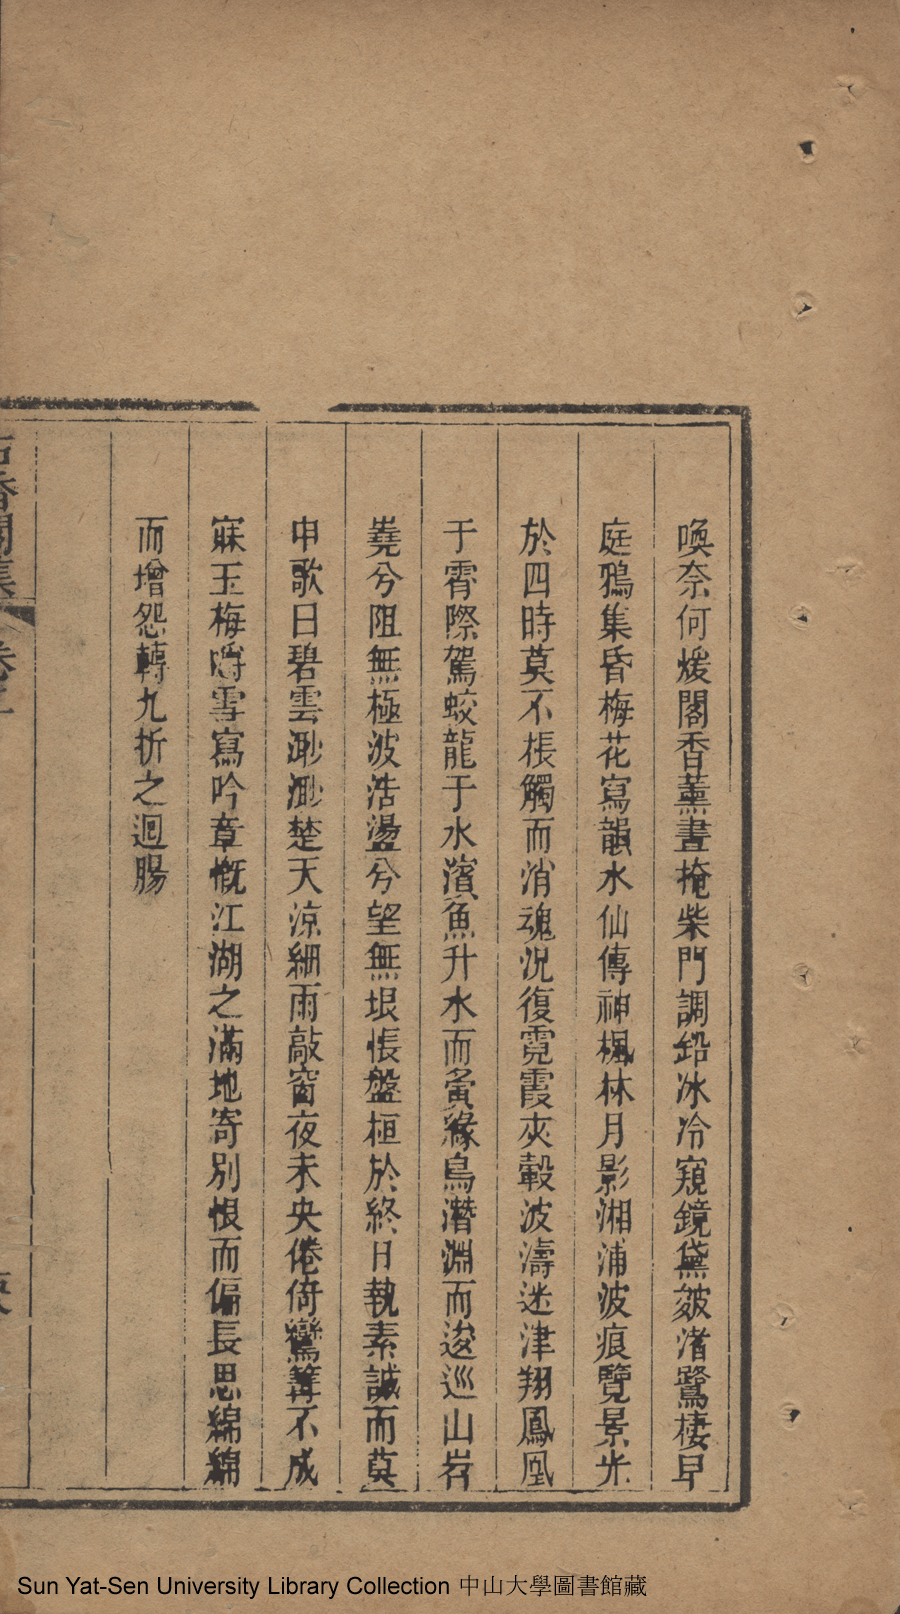 喚奈何煖閣香薰晝掩柴門調鉛冰冷窺鏡黛皴渚鷺棲早
庭鴉集昏梅花寫韻水仙傳神楓林月影湘浦波痕覽景光
於四時莫不棖觸而消魂況復霓霞夾轂波濤迷津翔鳳凰
于霄際駕蛟龍于水濱魚升木而夤緣鳥潛淵而逡巡山岧
嶤兮阻無極波浩盪兮望無垠悵盤桓於終日執素誠而莫
申歌曰碧雲渺渺楚天涼細雨敲窗夜未央倦倚鸞篝不成
寐玉梅嚼雪寫吟章慨江湖之滿地寄別恨而偏長思綿綿
而增怨轉九折之迴腸
香閣集 卷三
Sun Yat-Sen University Library Collection 中山大學圖書館藏